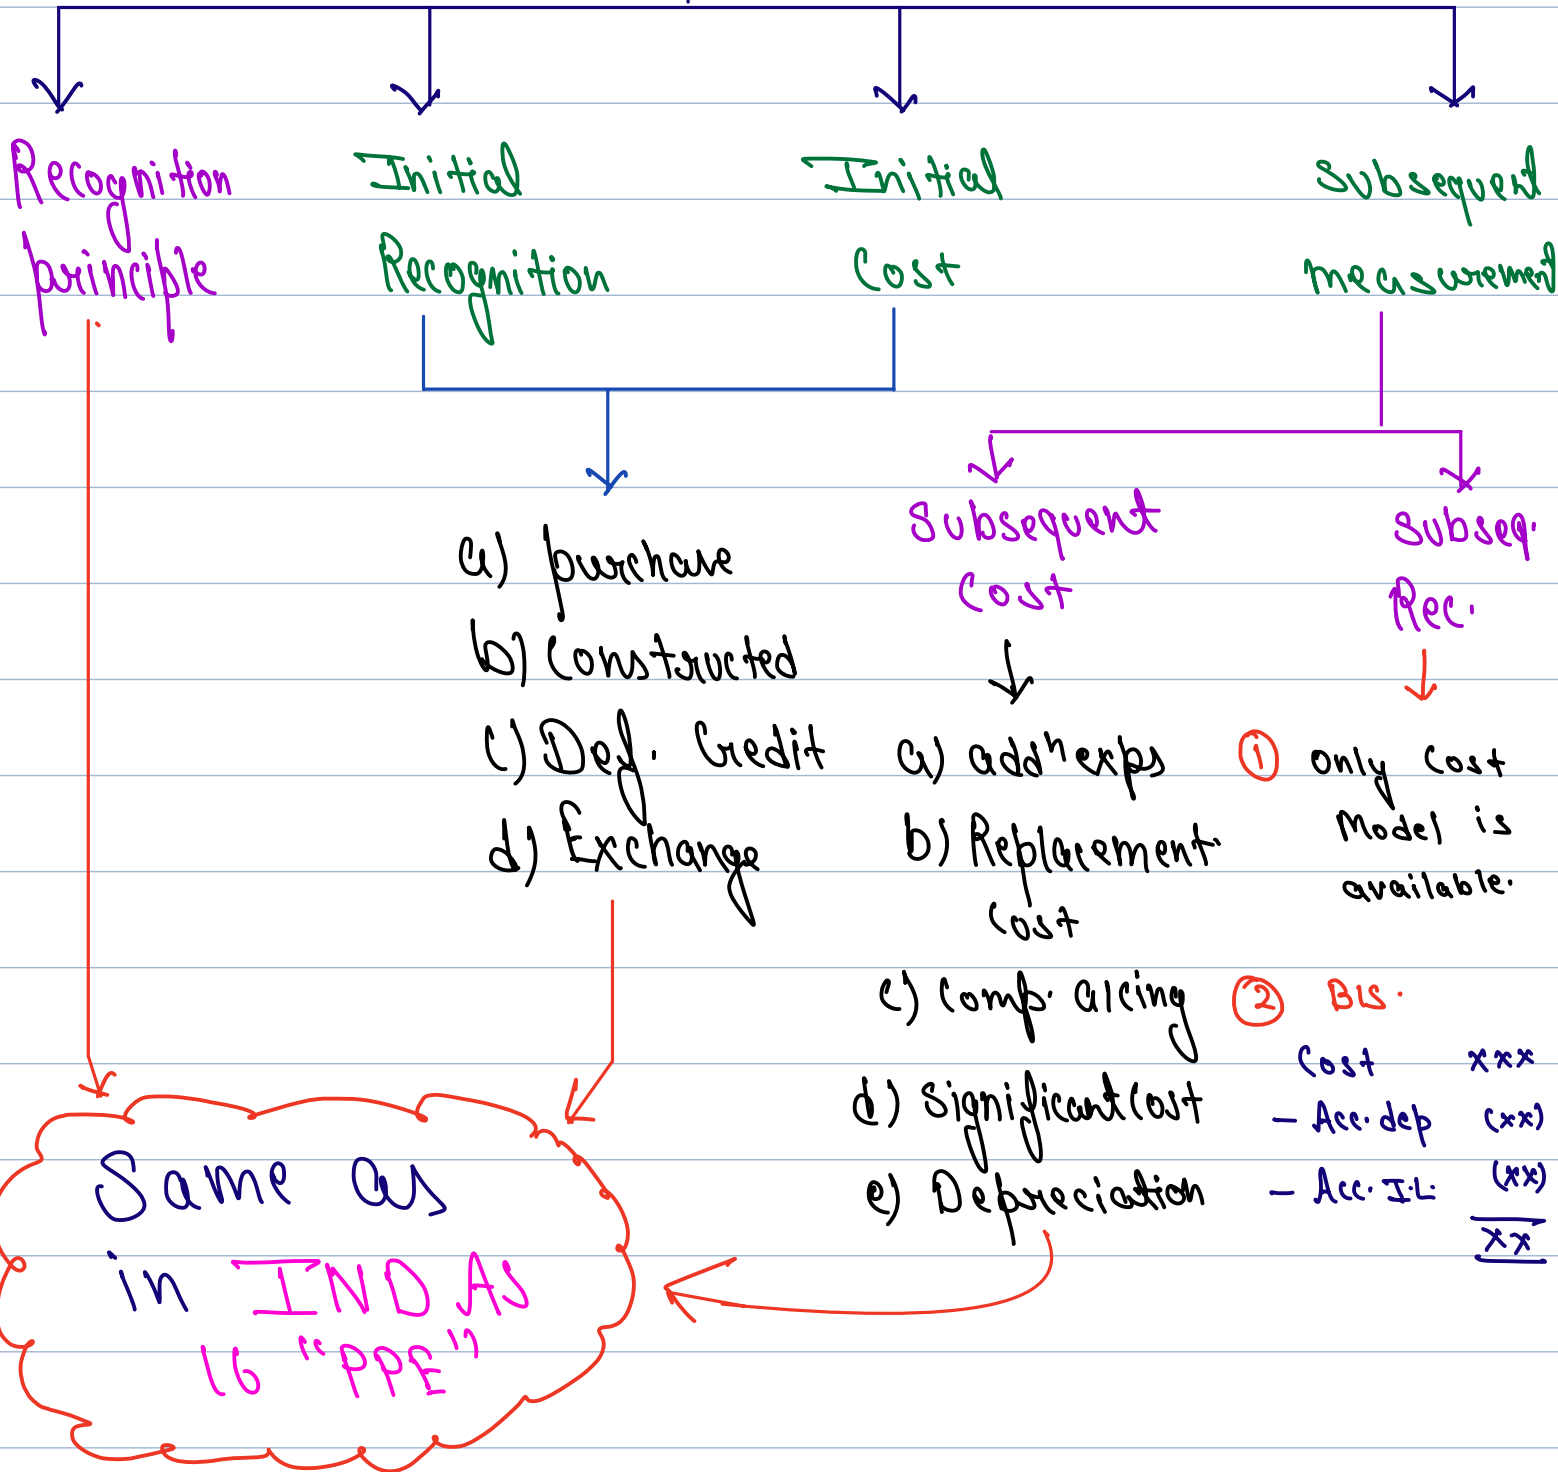 Recognition principle
Initial Recognition
Initial Cost
Subsequent measurement
a) purchase
b) Constructed
c) Def. Credit
d) Exchange
Subsequent Cost
a) addⁿ exps
b) Replacement Cost
c) Comp. alcing
d) Significant Cost
e) Depreciation
Subseq. Rec.
① only Cost
Model is
available.
② B/S.
Cost xxx
- Acc. dep (xx)
- Acc. I.L. (xx)
xx
Same as
in IND AS
16 "PPE"